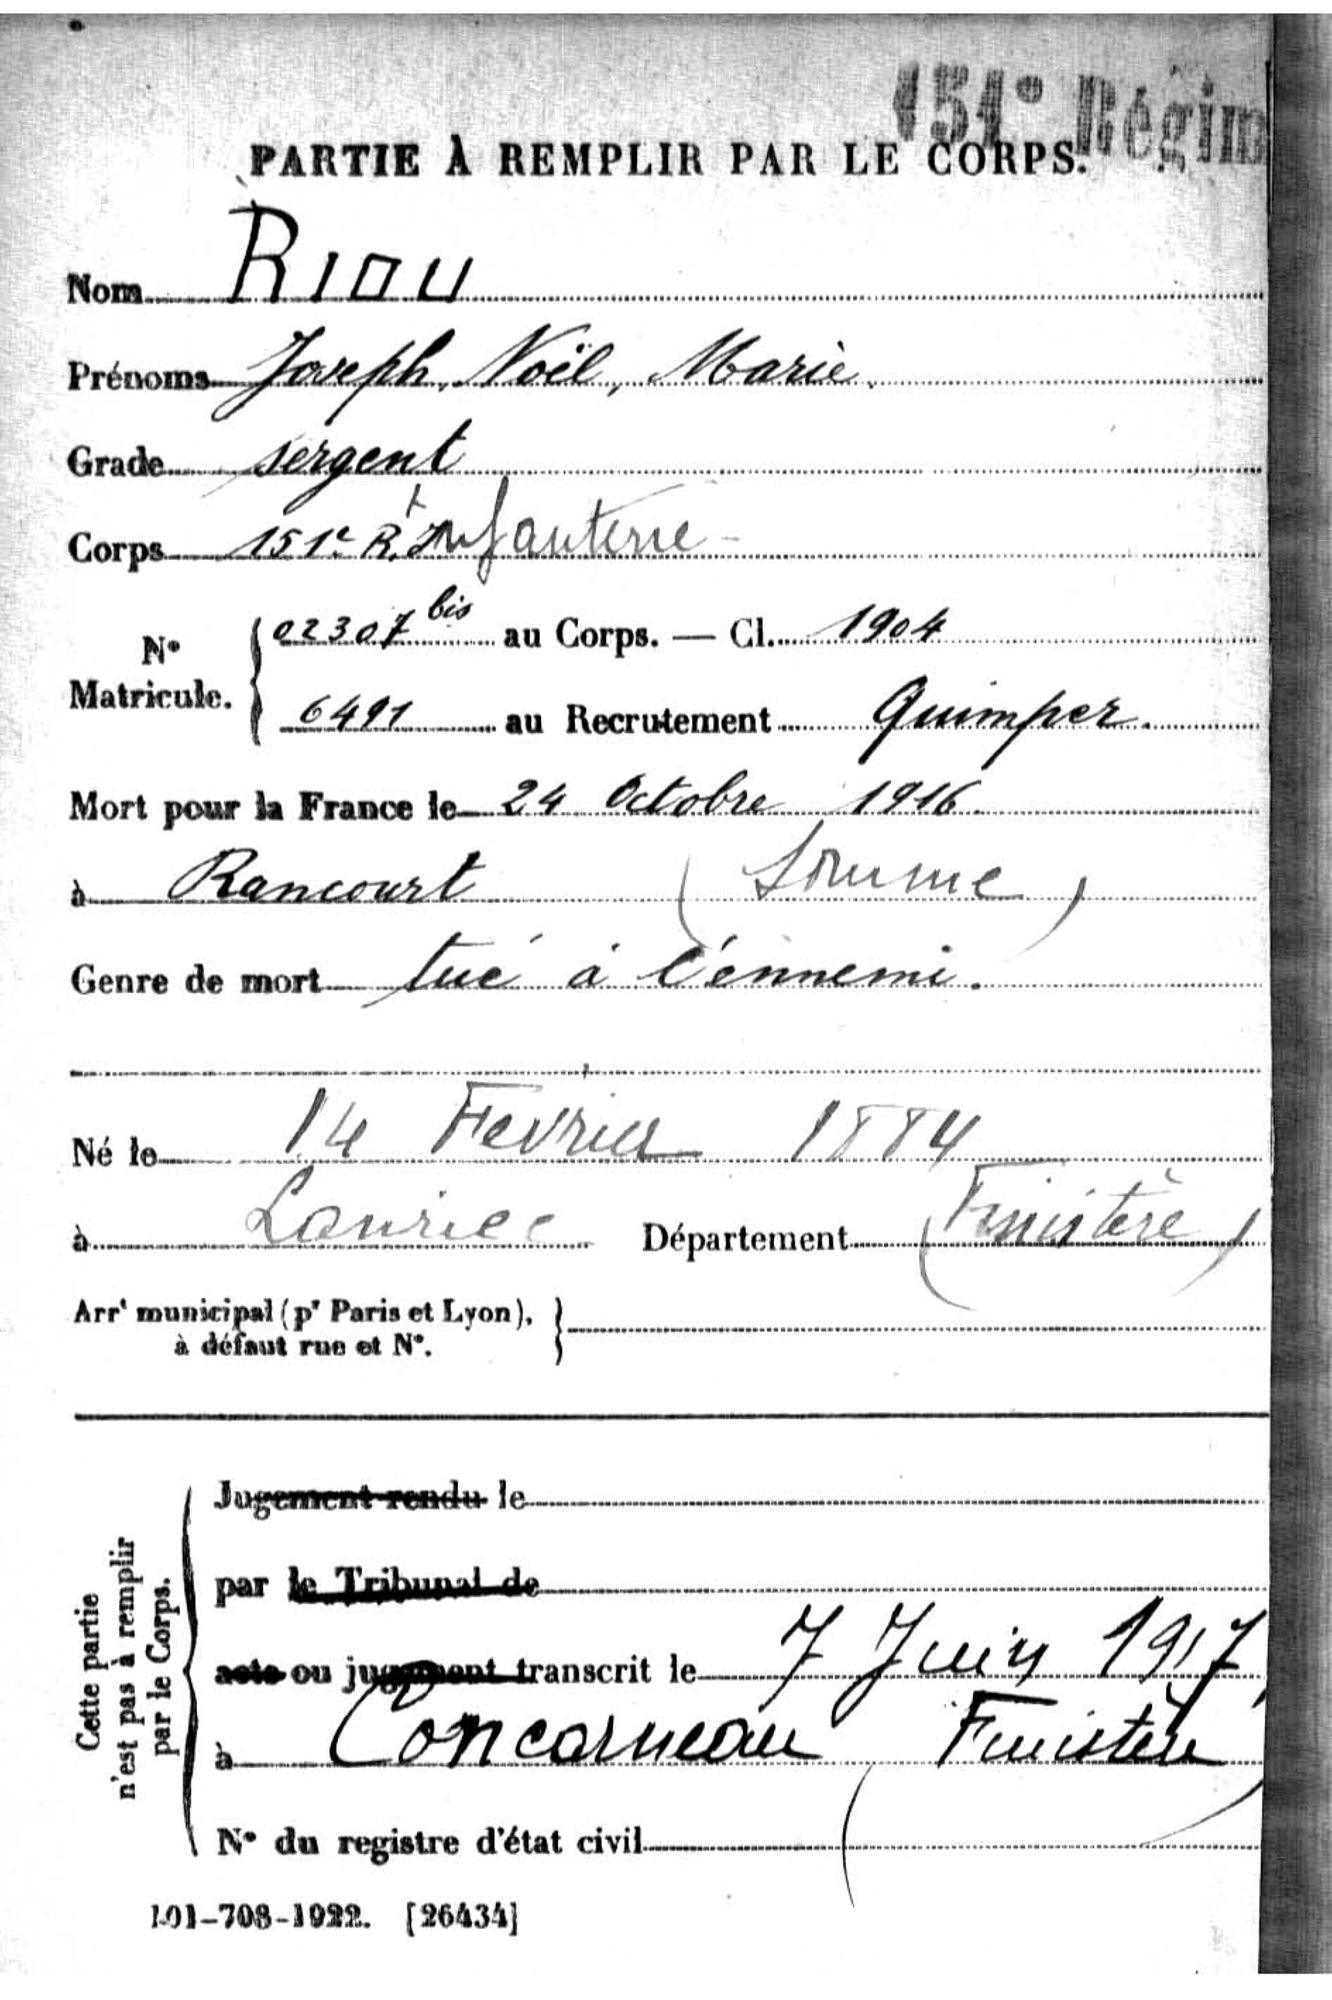 151e Régim
PARTIE À REMPLIR PAR LE CORPS.
Nom RIOU
Prénoms Joseph, Noël, Marie.
Grade sergent
Corps 151e Rt Infanterie
No Matricule. 02307 bis au Corps. — Cl. 1904
6491 au Recrutement Quimper.
Mort pour la France le 24 Octobre 1916.
à Rancourt (Somme)
Genre de mort tué à l'énnemi.
Né le 14 Fevrier 1884
à Lanriec Département (Finistère)
Arrt municipal (pr Paris et Lyon),
à défaut rue et No.
Cette partie n'est pas à remplir par le Corps.
Jugement rendu le
par le Tribunal de
acte ou jugement transcrit le 7 Juin 1917
à Concarneau (Finistère)
No du registre d'état civil
101-708-1922. [26434]